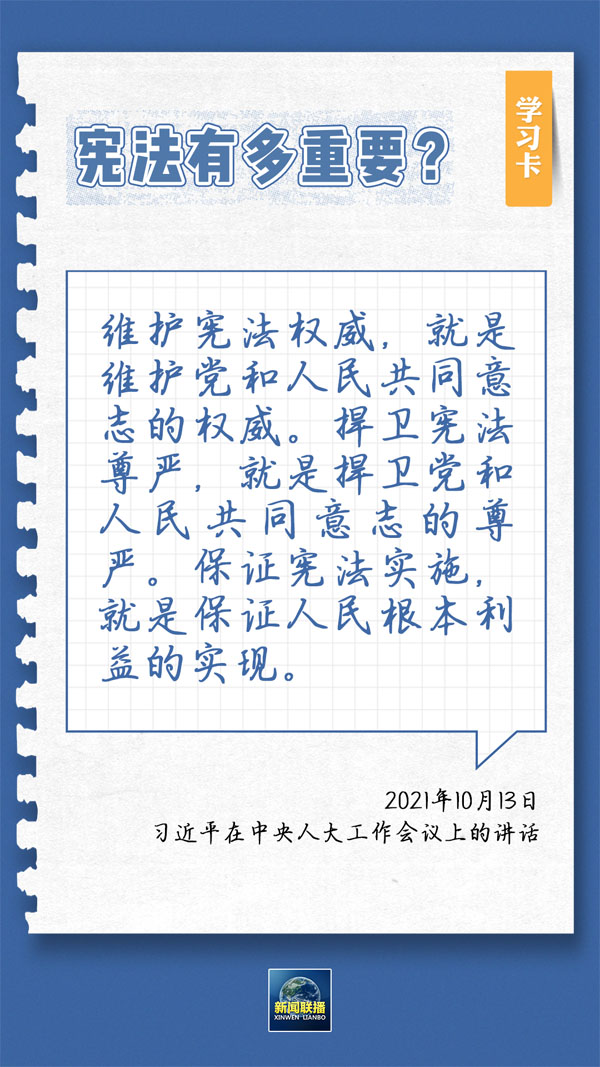 学习卡
宪法有多重要？
维护宪法权威，就是
维护党和人民共同意
志的权威。捍卫宪法
尊严，就是捍卫党和
人民共同意志的尊
严。保证宪法实施，
就是保证人民根本利
益的实现。
2021年10月13日
习近平在中央人大工作会议上的讲话
新闻联播
XINWEN LIANBO